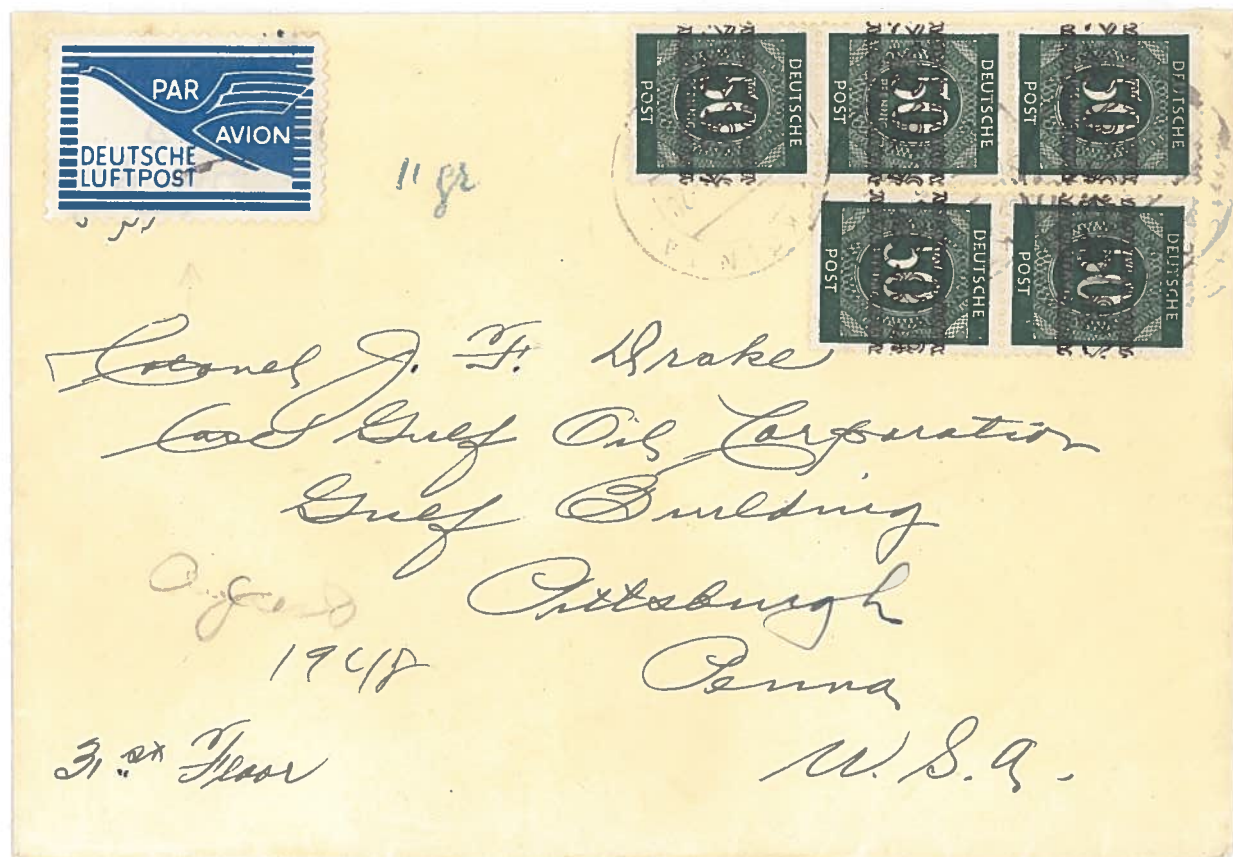 PAR
AVION
DEUTSCHE
LUFTPOST
11 gr
DEUTSCHE
POST
50
DEUTSCHE
POST
50
DEUTSCHE
POST
50
DEUTSCHE
POST
50
DEUTSCHE
POST
50
Colonel J. F. Drake
Gulf Oil Corporation
Gulf Building
Pittsburgh
August
1948
Penna
31st Floor
U. S. A.